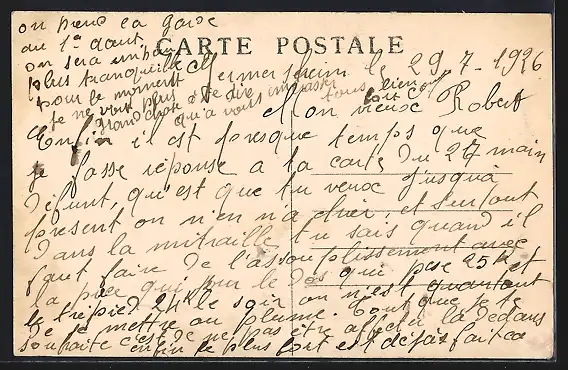 on prend la garde
au 1er aout,
on sera un peu
plus tranquille
pour le moment
je ne vois plus
grand chose a te dire
qu'a vous embrasser
tous bien
CARTE POSTALE
Germersheim le 29-7-1926
Mon vieux Robert
Enfin il est presque temps que
je fasse réponse a ta carte du 27 main
défunt, qu'est que tu veux jusquà
présent on n'en n'a chier, et surtout
dans la mitraille, tu sais quand il
faut faire de l'assouplissement avec
la pièce qui sur le dos qui pèse 25k et
le trépied 24k le soir on n'est quant
de se mettre au plume. Tout que je te
souhaite c'est de ne pas être affecté la dedans
enfin le plus fort est déjàs fait ca